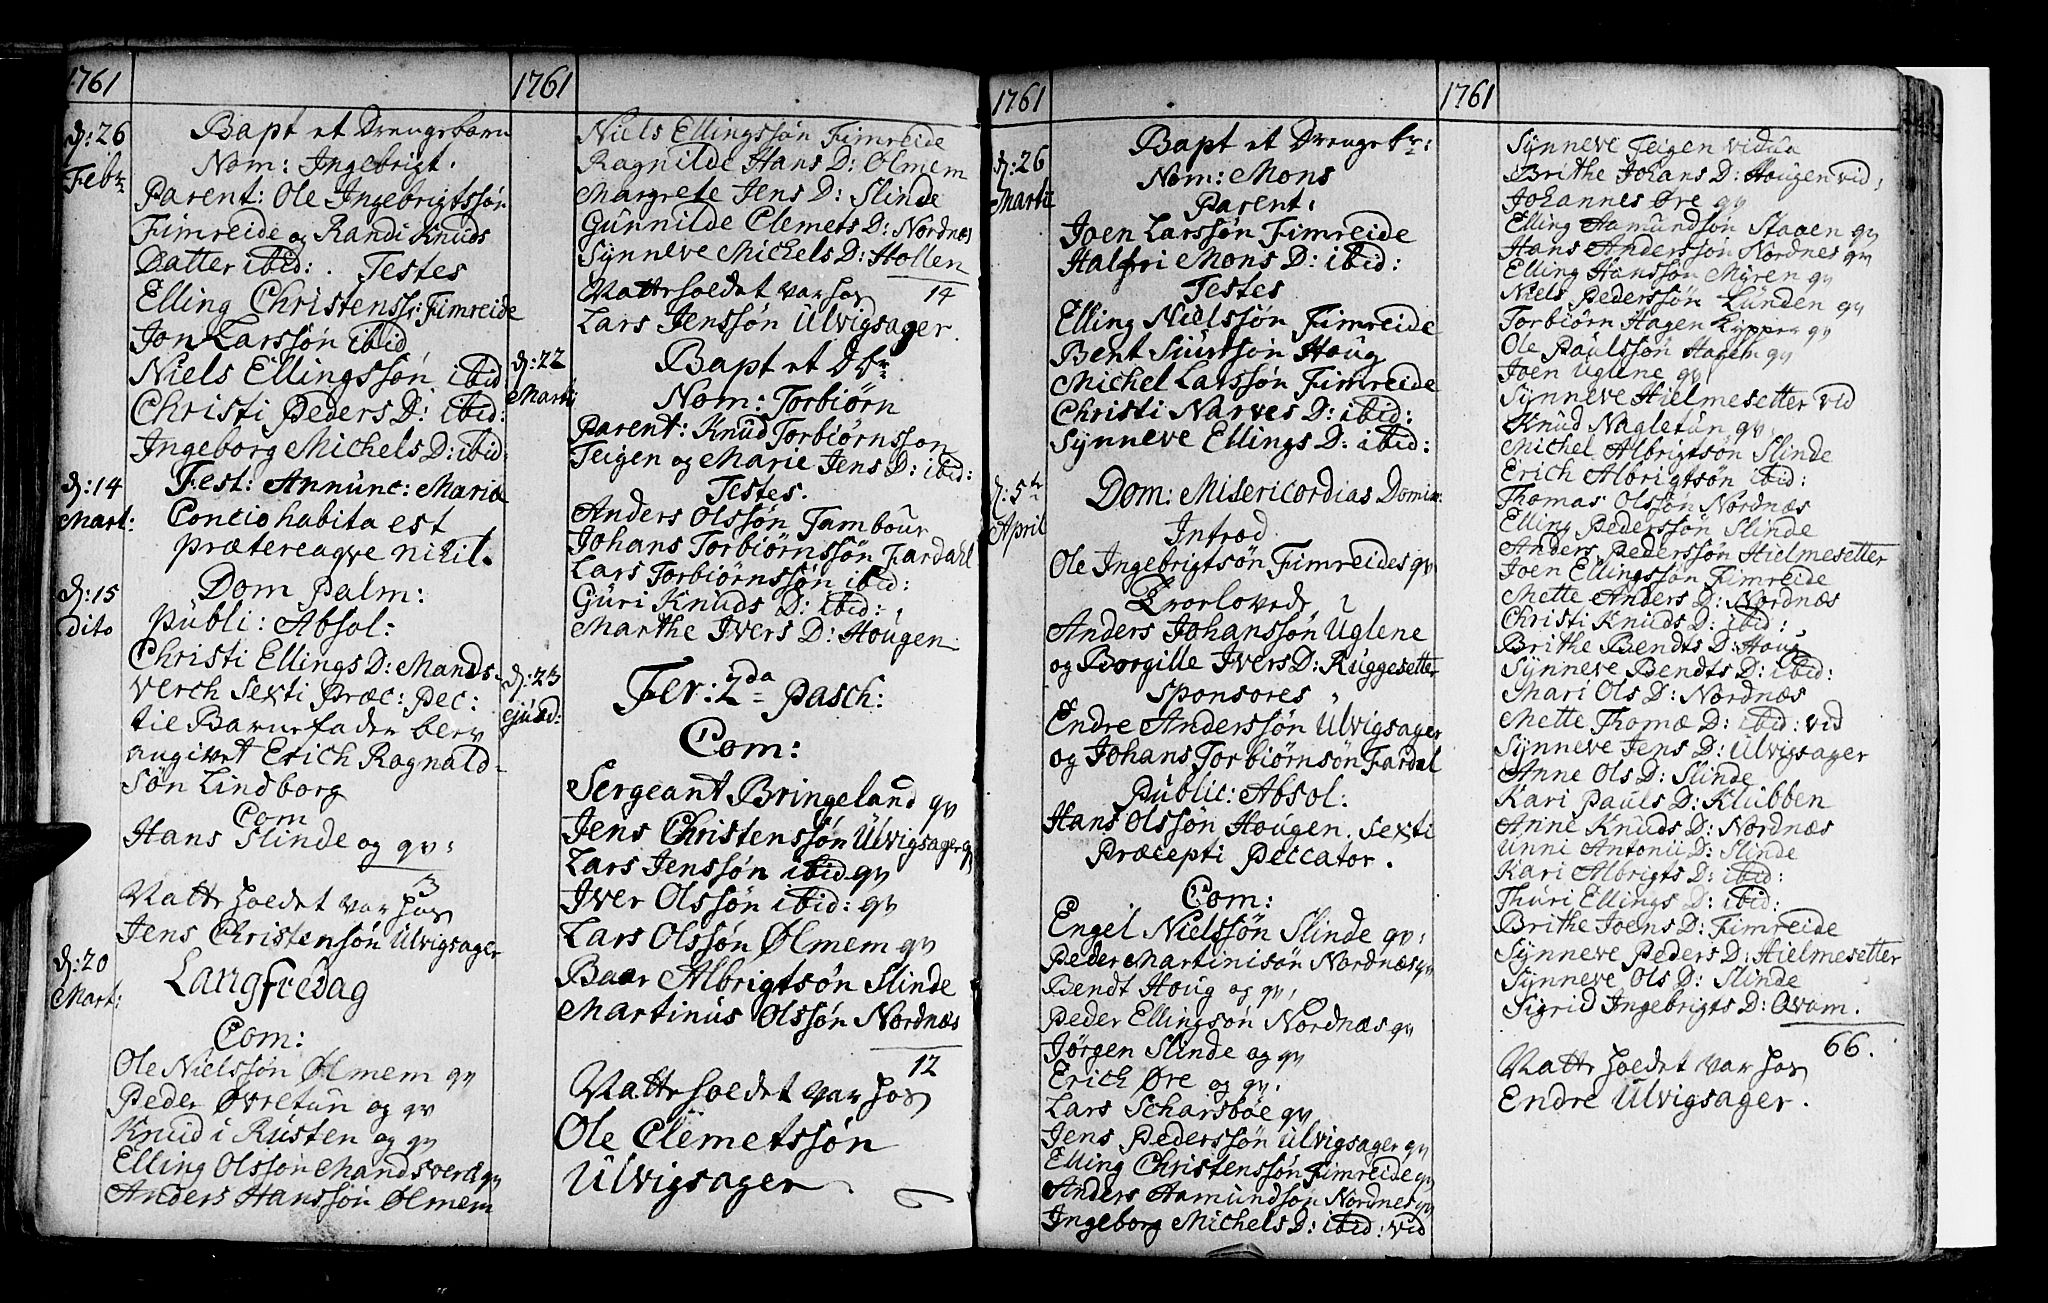 1761
d: 26
Febr
Bapt et Drengebarn
Nom: Ingebrigt.
Parent: Ole Ingebrigtssøn
Fimreide og Randi Knuds
Datter ibid: . Testes
Elling Christenss: Fimreide
Jon Larssøn ibid
Niels Ellingssøn ibid
Christi Peders D: ibid:
Ingeborg Michels D: ibid:
d: 14
Mart:
Fest: Annunc: Mariæ
Concio habita est
prætereaqve nihil.
d: 15
dito
Dom Palm:
Publi: Absol:
Christi Ellings D: Mands-
verch Sexti Præc: Pec:
til Barnefader blev
angivet Erich Ragnald-
søn Lindborg
Com
Hans Slinde og qv:
3
Natteholdet var hos
Jens Christensøn Ulvigsager
d: 20
Mart:
Langfredag
Com:
Ole Nielssøn Ølmem qv
Peder Øvretun og qv
Knud i Rusten og qv
Elling Olssøn Mandsverch qv
Anders Hanssøn Ølmem
1761
Niels Ellingssøn Fimreide
Ragnilde Hans D: Ølmem
Margrete Jens D: Slinde
Gunnilde Clemets D: Nordnæs
Synneve Michels D: Hollen
14
Natteholdet var hos
Lars Jenssøn Ulvigsager.
d: 22
Martii
Bapt et D br
Nom: Torbiørn
Parent: Knud Torbiørnssøn
Teigen og Marie Jens D: ibid:
Testes.
Anders Olssøn Tambour
Johans Torbiørnssøn Fardahl
Lars Torbiørnssøn ibid:
Guri Knuds D: ibid:
Marthe Ivers D: Hougen
d: 23
ejusd:
Fer: 2da Pasch:
Com:
Sergeant Bringeland qv
Jens Christenssøn Ulvigsager qv
Lars Jenssøn ibid qv
Iver Olssøn ibid: qv
Lars Olssøn Ølmem qv
Baar Albrigtsøn Slinde
Martinus Olssøn Nordnæs
12
Natteholdet var hos
Ole Clemetssøn
Ulvigsager.
1761
d: 26
Martii
Bapt et Drengebr:
Nom: Mons
Parent:
Joen Larssøn Fimreide
Halfri Mons D: ibid:
Testes
Elling Nielssøn Fimreide
Bent Siurssøn Houg
Michel Larssøn Fimreide
Christi Narves D: ibid:
Synneve Ellings D: ibid:
d: 5te
April
Dom: Misericordias Domini
Introd
Ole Ingebrigtsøn Fimreides qv
Trorlovede
Anders Johanssøn Uglene
og Borgille Ivers D: Ruggesetter
Sponsores
Endre Anderssøn Ulvigsager
og Johans Torbiørnsøn Fardal
Public: Absol:
Hans Olssøn Hougen Sexti
Præcepti Peccator.
Com:
Engel Nielssøn Slinde qv:
Peder Martinisøn Nordnæs qv
Bendt Houg og qv:
Peder Ellingsøn Nordnæs qv
Jørgen Slinde og qv
Erich Øre og qv:
Lars Scharsbøe qv
Jens Pederssøn Ulvigsager qv
Elling Christenssøn Fimreide qv
Anders Aamundsøn Nordnes qv
Ingeborg Michels D: ibid: vid
1761
Synneve Teigen vidua
Brithe Johans D: Hougen vid:
Johannes Øre qv
Elling Aamundsøn Staaen qv
Hans Anderssøn Nordnes qv
Elling Hanssøn Myren qv
Niels Pederssøn Lunden qv
Torbiørn Hagen Kypper qv
Ole Paulssøn Hagen qv
Joen Uglene qv
Synneve Hielmesetter vid
Knud Nagletun qv
Michel Albrigtsøn Slinde
Erich Albrigtsøn ibid:
Thomas Olssøn Nordnæs
Elling Pederssøn Slinde
Anders Pederssøn Hielmesetter
Joen Ellingssøn Fimreide
Mette Anders D: Nordnæs
Christi Knuds D: ibid:
Brithe Bendts D: Houg
Synneve Bendts D: ibid:
Mari Ols D: Nordnæs
Mette Thomæ D: ibid: vid
Synneve Jens D: Ulvigsager
Anne Ols D: Slinde
Kari Pauls D: Klubben
Anne Knuds D: Nordnæs
Unni Antonii D: Slinde
Kari Albrigts D: ibid:
Thuri Ellings D: ibid:
Brithe Joens D: Fimreide
Synneve Peders D: Hielmesetter
Synneve Ols D: Slinde
Sigrid Ingebrigts D: Qvam.
66.
Natteholdet var hos
Endre Ulvigsager.